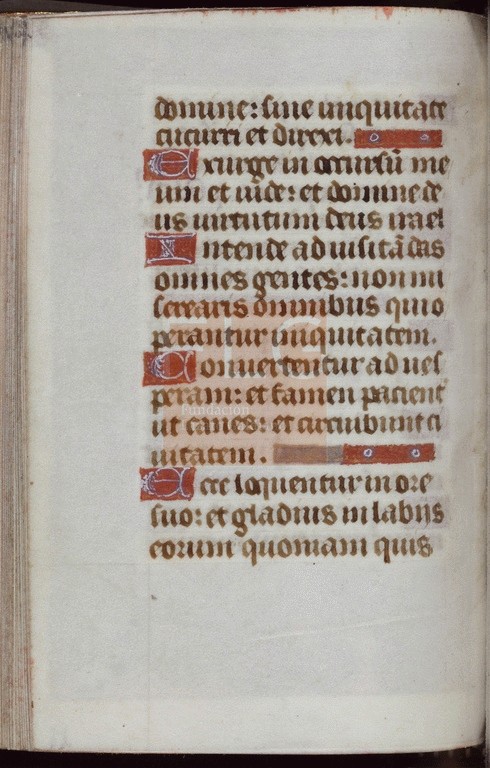 domine: sine iniquitate
cucurri et direxi.
Exurge in occursū me
um et vide: et domine de
us virtutum deus israel
Intende ad visitādas
omnes gentes: non mi
serearis omnibus qui o
perantur iniquitatem.
Convertentur ad ves
peram: et famen pacient
ut canes: et circuibunt ci
vitatem.
Ecce loquentur in ore
suo: et gladius in labiis
eorum quoniam quis
Fundación